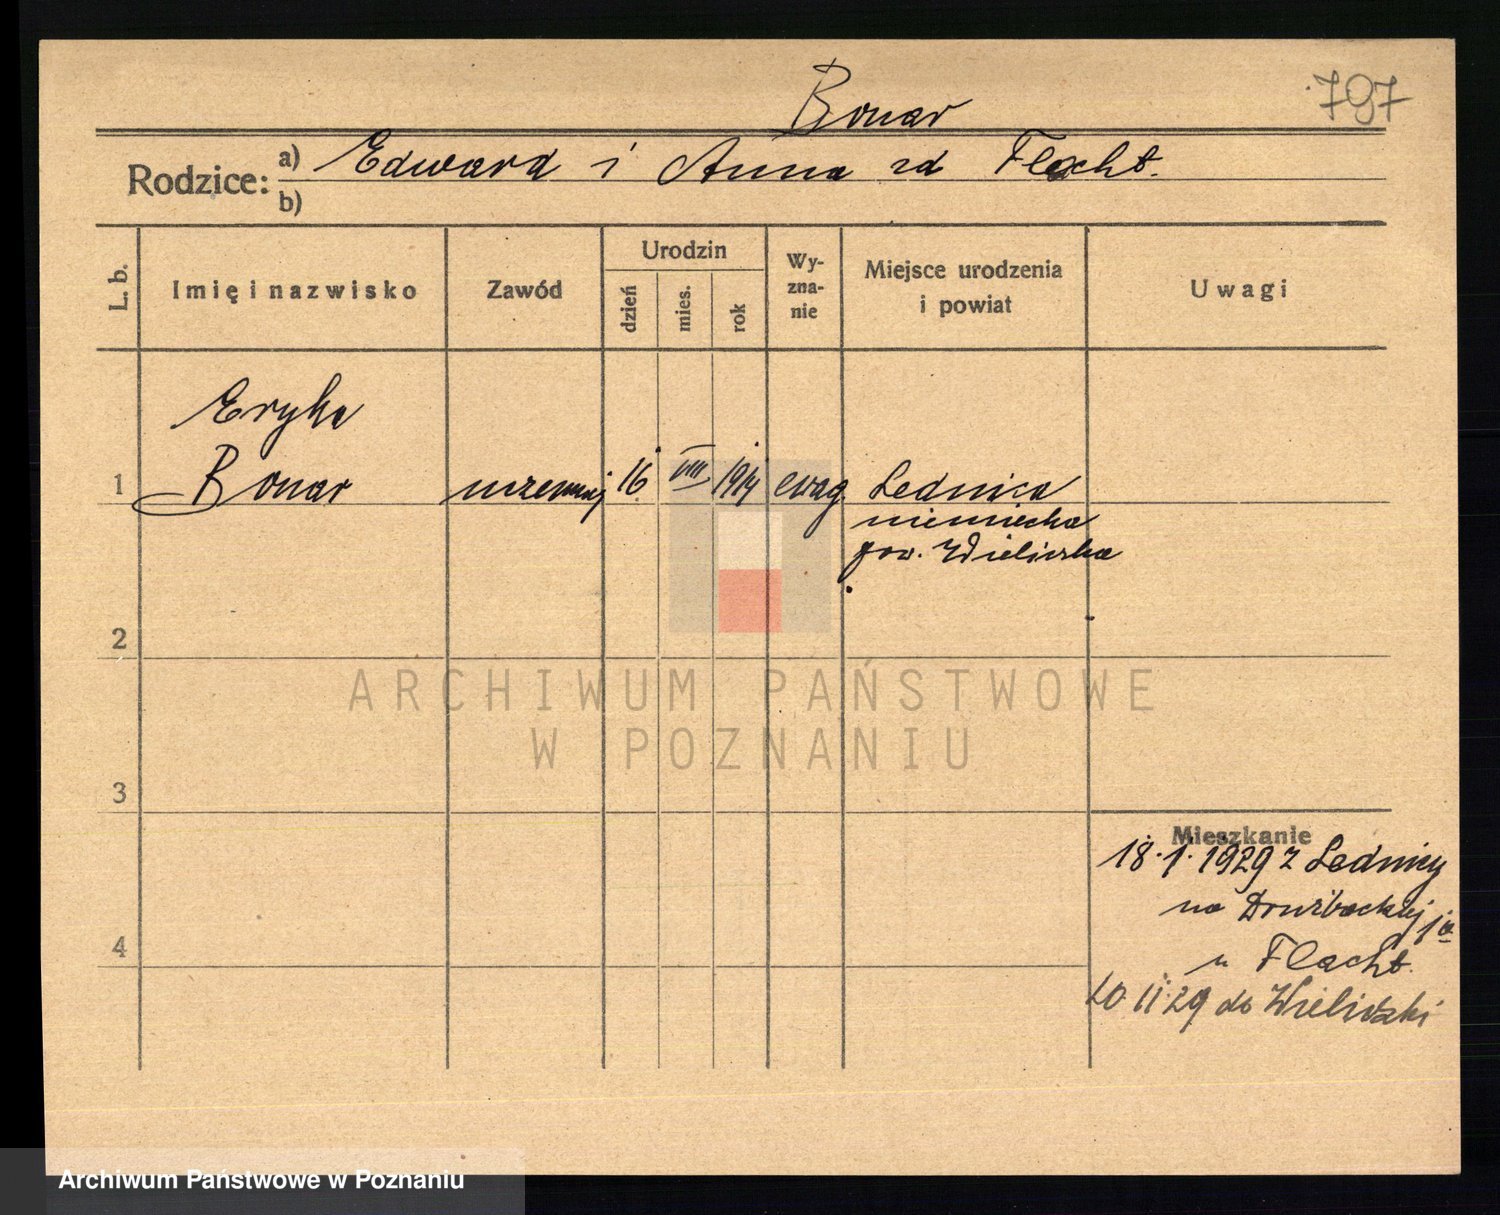 Bonar
797
Rodzice: a) Edward i Anna zd Flacht.
b)
L. b. Imię i nazwisko Zawód Urodzin dzień mies. rok Wy-zna-nie Miejsce urodzenia i powiat Uwagi
Eryka
1 Bonar 16 VIII 1914 ewag. Lednica
niemiecka
pow. Wieliczka
2
ARCHIWUM PAŃSTWOWE
W POZNANIU
3
Mieszkanie
18.1.1929 z Lednicy
na Droużbackiej
u Flacht.
4
20.11.29 do Wieliczki
Archiwum Państwowe w Poznaniu